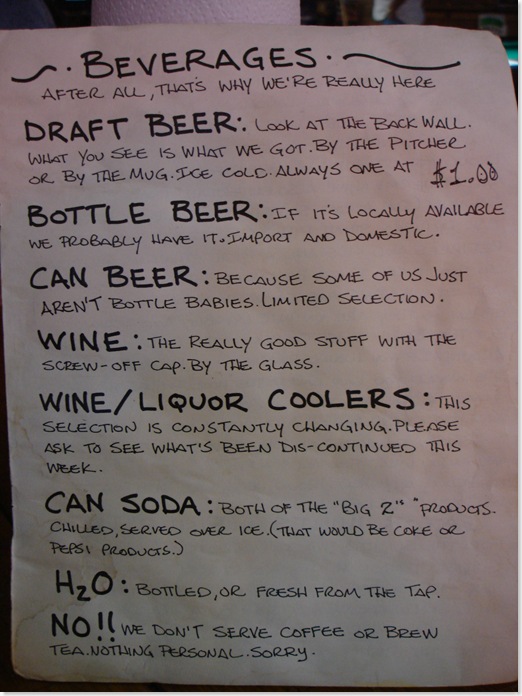 ~·BEVERAGES·~
AFTER ALL, THAT'S WHY WE'RE REALLY HERE
DRAFT BEER: LOOK AT THE BACK WALL.
WHAT YOU SEE IS WHAT WE GOT. BY THE PITCHER
OR BY THE MUG. ICE COLD. ALWAYS ONE AT $1.00
BOTTLE BEER: IF IT'S LOCALLY AVAILABLE
WE PROBABLY HAVE IT. IMPORT AND DOMESTIC.
CAN BEER: BECAUSE SOME OF US JUST
AREN'T BOTTLE BABIES. LIMITED SELECTION.
WINE: THE REALLY GOOD STUFF WITH THE
SCREW-OFF CAP. BY THE GLASS.
WINE/LIQUOR COOLERS: THIS
SELECTION IS CONSTANTLY CHANGING. PLEASE
ASK TO SEE WHAT'S BEEN DIS-CONTINUED THIS
WEEK.
CAN SODA: BOTH OF THE "BIG 2'S" "PRODUCTS.
CHILLED, SERVED OVER ICE. (THAT WOULD BE COKE OR
PEPSI PRODUCTS.)
H2O: BOTTLED, OR FRESH FROM THE TAP.
NO!! WE DON'T SERVE COFFEE OR BREW
TEA. NOTHING PERSONAL. SORRY.